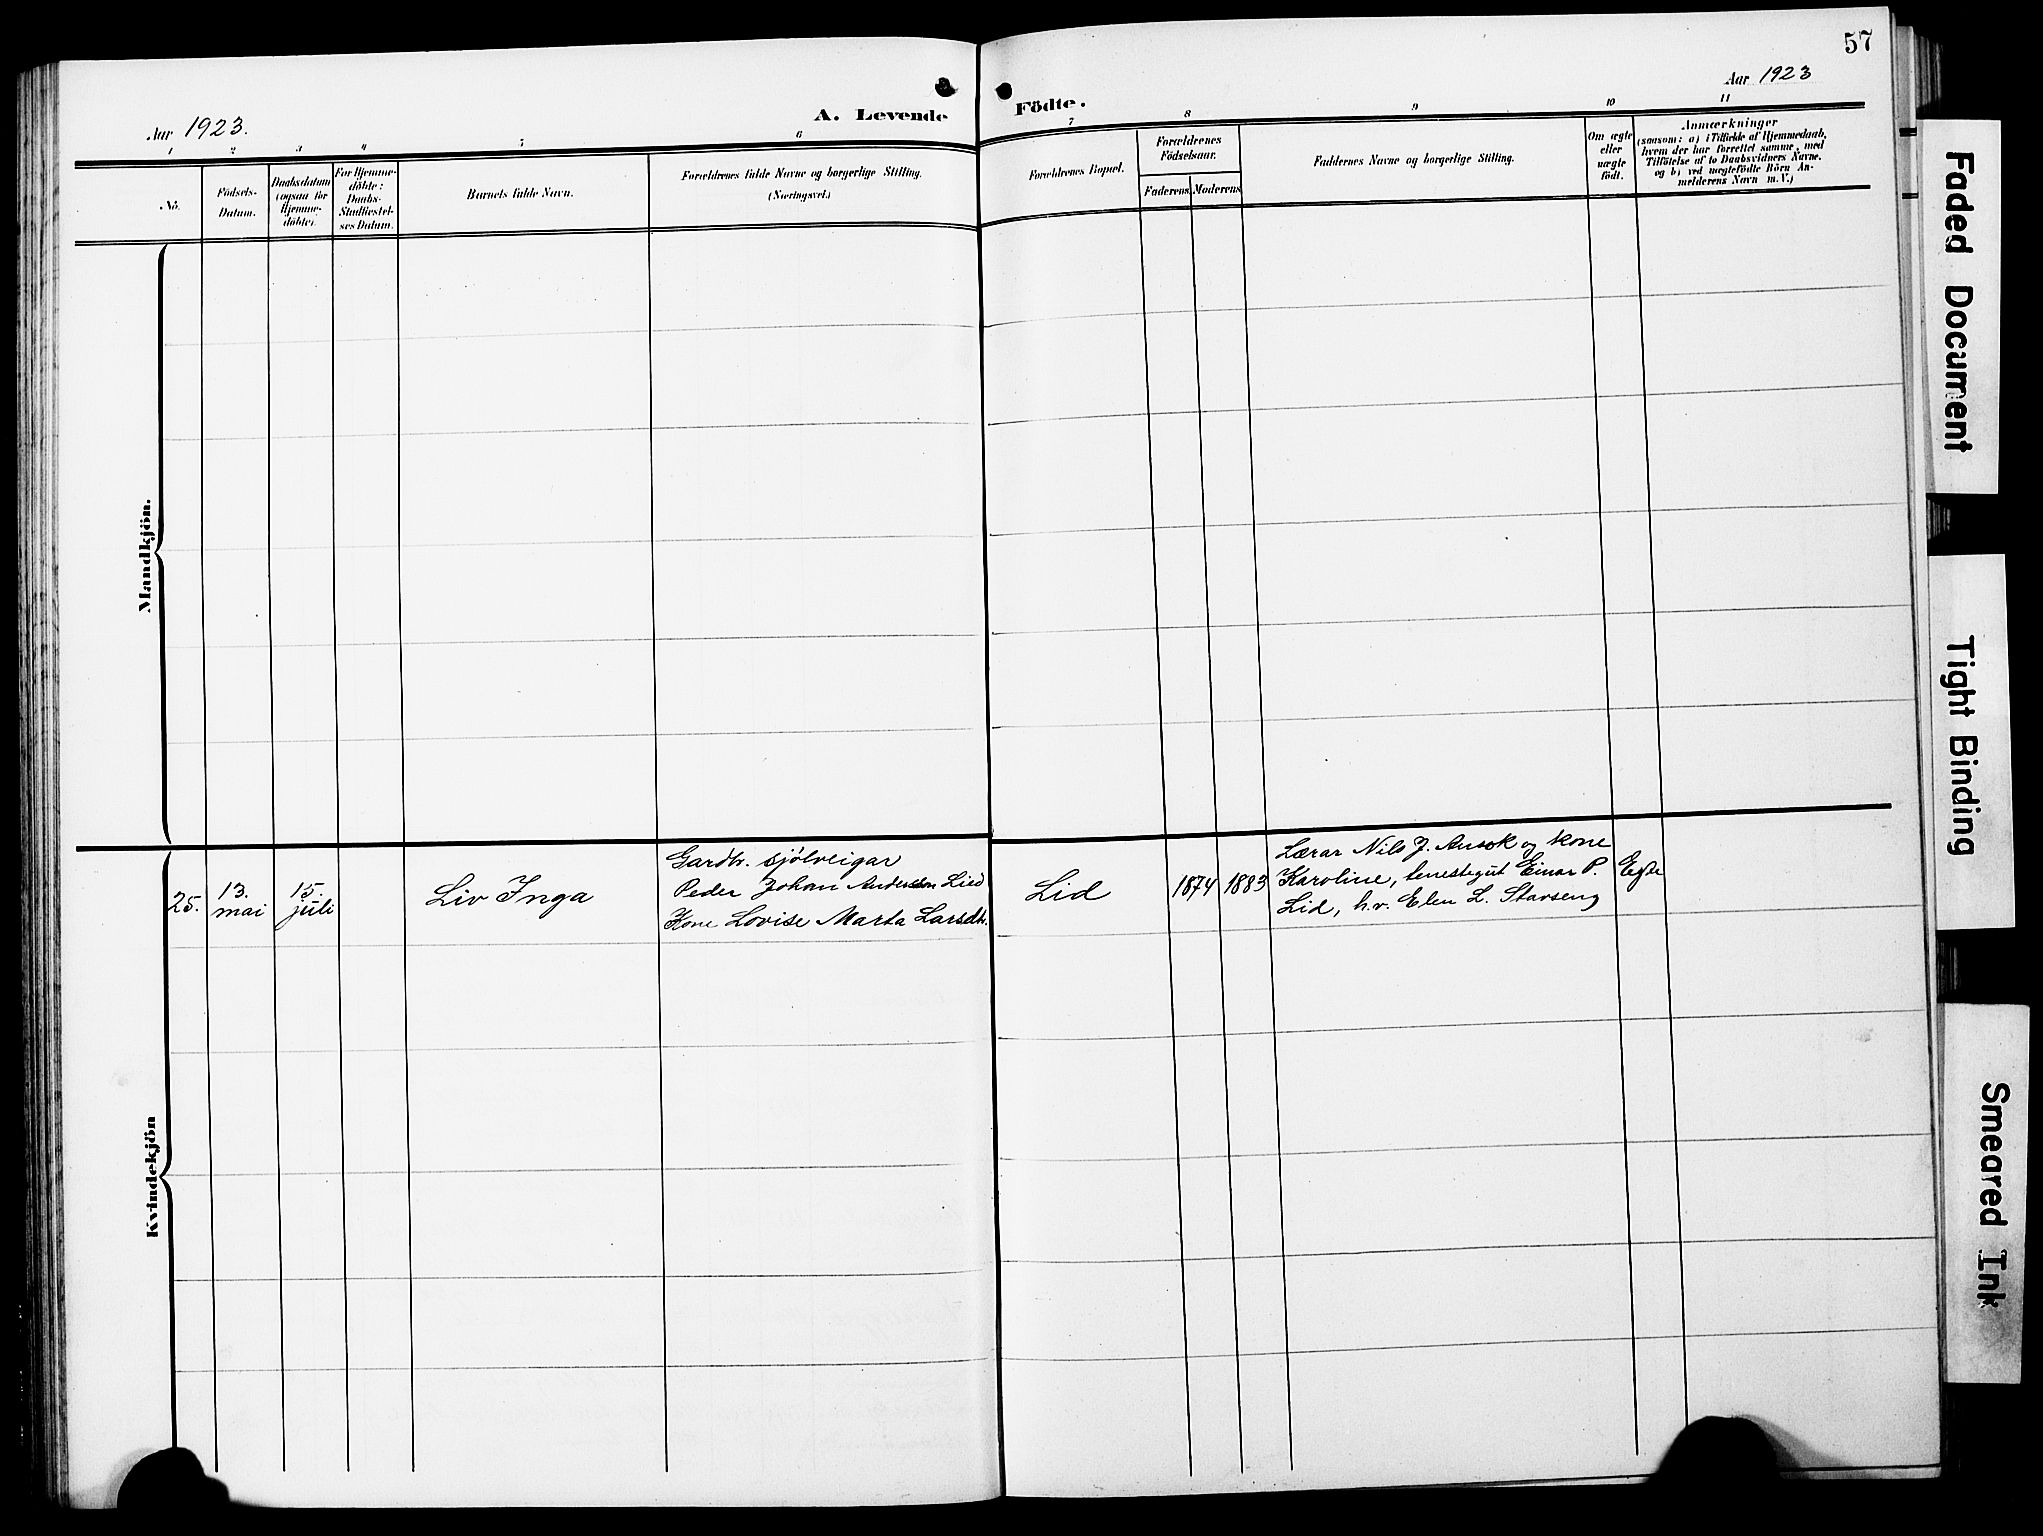 57
Aar 1923.
A. Levende
Födte.
Aar 1923
1 2 3 4 5 6 7 8 9 10 11
No.
Födsels-
Datum.
Daabsdatum
(ogsaa for
Hjemme-
döbte).
For Hjemme-
döbte:
Daabs-
Stadfæstel-
ses Datum.
Barnets fulde Navn.
Forældrenes fulde Navne og borgerlige Stilling.
(Næringsvei.)
Forældrenes Bopæl.
Forældrenes
Födselsaar.
Faderens Moderens
Faddernes Navne og borgerlige Stilling.
Om ægte
eller
uægte
födt.
Anmærkninger
(saasom: a) i Tilfælde af Hjemmedaab,
hvem der har forrettet samme, med
Tilföielse af to Daabsvidners Navne.
og b) ved uægtefödte Börn An-
melderens Navn m. V.)
Mandkjön.
Kvindekjön
25.
13.
mai
15.
juli
Liv Inga
Gardbr. sjölveigar
Peder Johan Anderssen Lied
Kone Lovise Marta Larsdtr.
Lid
1874
1883
Lærar Nils J. og kone
Karoline, tenestegut Einar P.
Lid, h.v. Elen L. Stavseng
Egte
Faded Document
Tight Binding
Smeared Ink